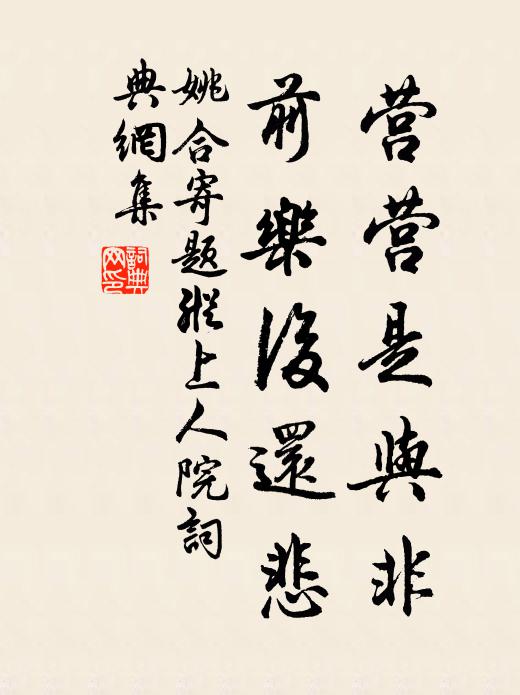 营营是與非
前樂後還悲
姚合寄題縱上人院詞
典網集
詞典
网印